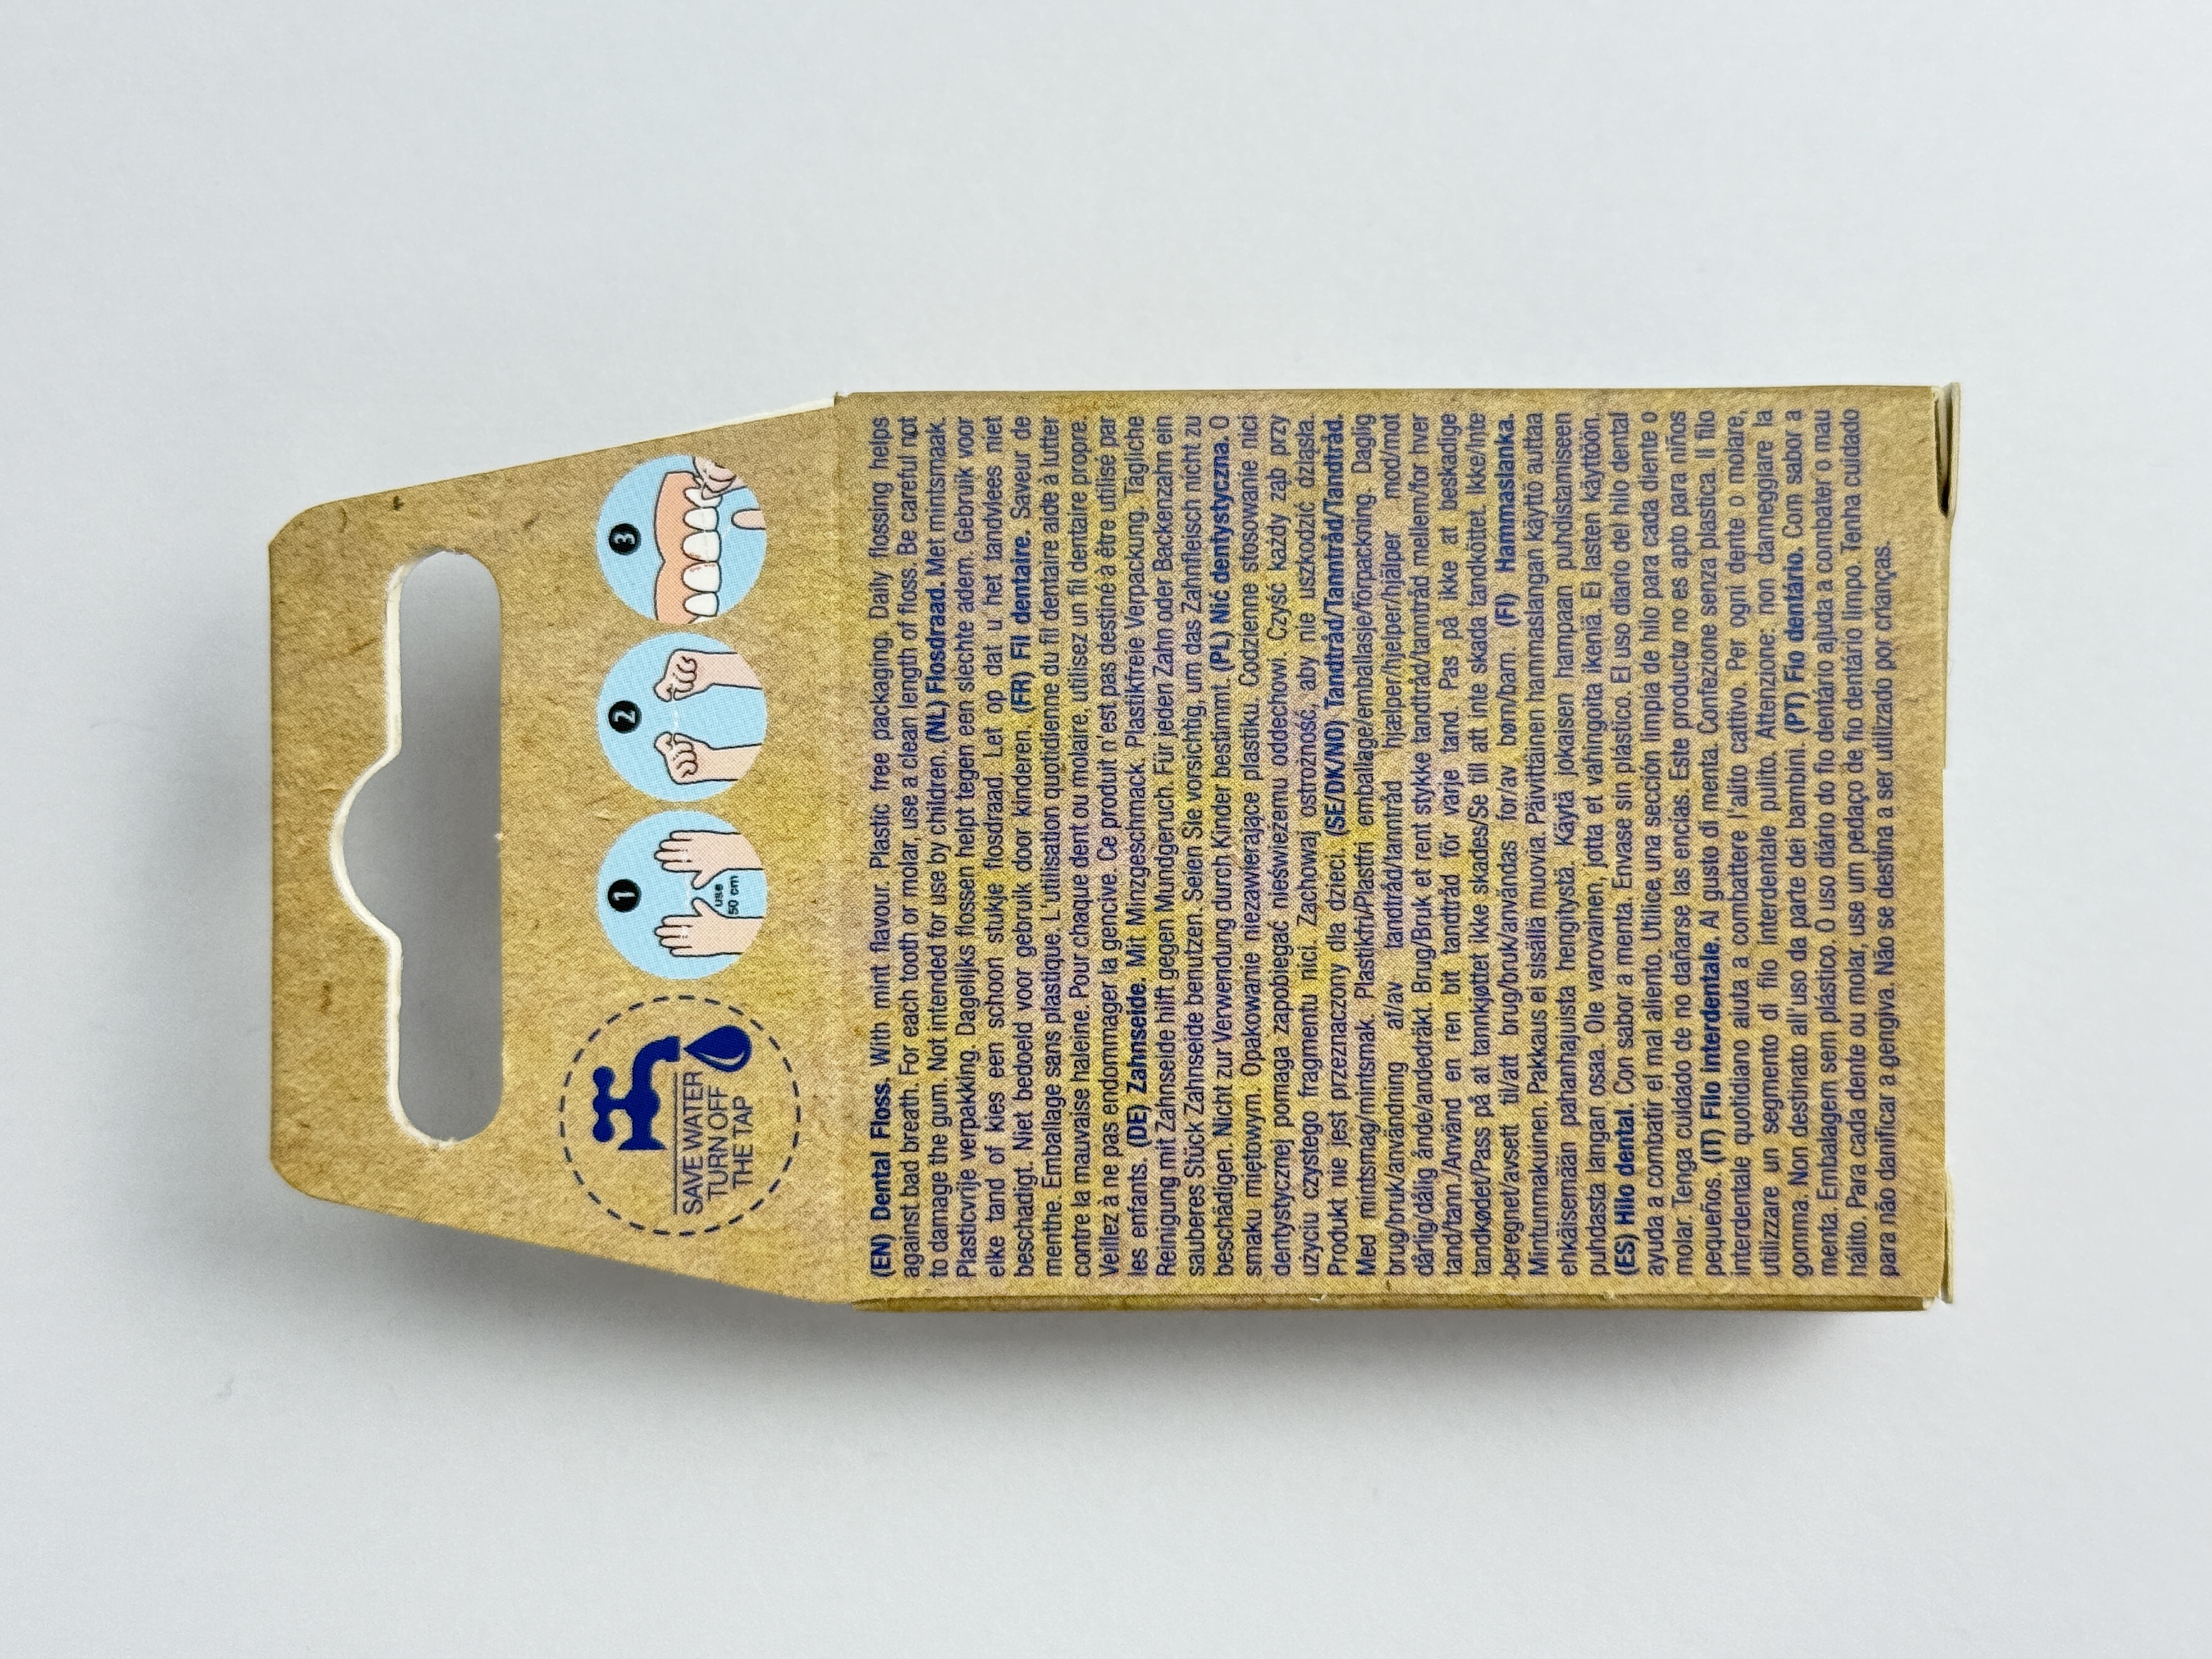 SAVE WATER
TURN OFF
THE TAP
1
use
50 cm
2
3
(EN) Dental Floss. With mint flavour. Plastic free packaging. Daily flossing helps
against bad breath. For each tooth or molar, use a clean length of floss. Be careful not
to damage the gum. Not intended for use by children. (NL) Flosdraad. Met mintsmaak.
Plasticvrije verpakking. Dagelijks flossen helpt tegen een slechte adem. Gebruik voor
elke tand of kies een schoon stukje flosdraad. Let op dat u het tandvlees niet
beschadigt. Niet bedoeld voor gebruik door kinderen. (FR) Fil dentaire. Saveur de
menthe. Emballage sans plastique. L'utilisation quotidienne du fil dentaire aide à lutter
contre la mauvaise haleine. Pour chaque dent ou molaire, utilisez un fil dentaire propre.
Veillez à ne pas endommager la gencive. Ce produit n'est pas destiné à être utilisé par
les enfants. (DE) Zahnseide. Mit Minzgeschmack. Plastikfreie Verpackung. Tägliche
Reinigung mit Zahnseide hilft gegen Mundgeruch. Für jeden Zahn oder Backenzahn ein
sauberes Stück Zahnseide benutzen. Seien Sie vorsichtig, um das Zahnfleisch nicht zu
beschädigen. Nicht zur Verwendung durch Kinder bestimmt. (PL) Nić dentystyczna. O
smaku miętowym. Opakowanie niezawierające plastiku. Codzienne stosowanie nici
dentystycznej pomaga zapobiegać nieświeżemu oddechowi. Czyść każdy ząb przy
użyciu czystego fragmentu nici. Zachowaj ostrożność, aby nie uszkodzić dziąsła.
Produkt nie jest przeznaczony dla dzieci. (SE/DK/NO) Tandtråd/Tanntråd/Tandtråd.
Med mintsmag/mintsmak. Plastikfri/Plastfri emballage/emballasje/förpackning. Daglig
brug/bruk/användning af/av tandtråd/tanntråd hjælper/hjelper/hjälper mod/mot
dårlig/dålig ånde/andedräkt. Brug/Bruk et rent stykke tandtråd/tanntråd mellem/for hver
tand/tann./Använd en ren bit tandtråd för varje tand. Pas på ikke at beskadige
tandkødet/Pass på at tannkjøttet ikke skades/Se till att inte skada tandköttet. Ikke/Inte
beregnet/avsett til/att brug/bruk/användas for/av børn/barn. (FI) Hammaslanka.
Mintunmakuinen. Pakkaus ei sisällä muovia. Päivittäinen hammaslangan käyttö auttaa
ehkäisemään pahanhajuista hengitystä. Käytä jokaisen hampaan puhdistamiseen
puhdasta langan osaa. Ole varovainen, jotta et vahingoita ikeniä. Ei lasten käyttöön.
(ES) Hilo dental. Con sabor a menta. Envase sin plástico. El uso diario del hilo dental
ayuda a combatir el mal aliento. Utilice una sección limpia de hilo para cada diente o
molar. Tenga cuidado de no dañarse las encías. Este producto no es apto para niños
pequeños. (IT) Filo interdentale. Al gusto di menta. Confezione senza plastica. Il filo
interdentale quotidiano aiuta a combattere l'alito cattivo. Per ogni dente o molare,
utilizzare un segmento di filo interdentale pulito. Attenzione: non danneggiare la
gomma. Non destinato all'uso da parte dei bambini. (PT) Fio dentário. Com sabor a
menta. Embalagem sem plástico. O uso diário do fio dentário ajuda a combater o mau
hálito. Para cada dente ou molar, use um pedaço de fio dentário limpo. Tenha cuidado
para não danificar a gengiva. Não se destina a ser utilizado por crianças.